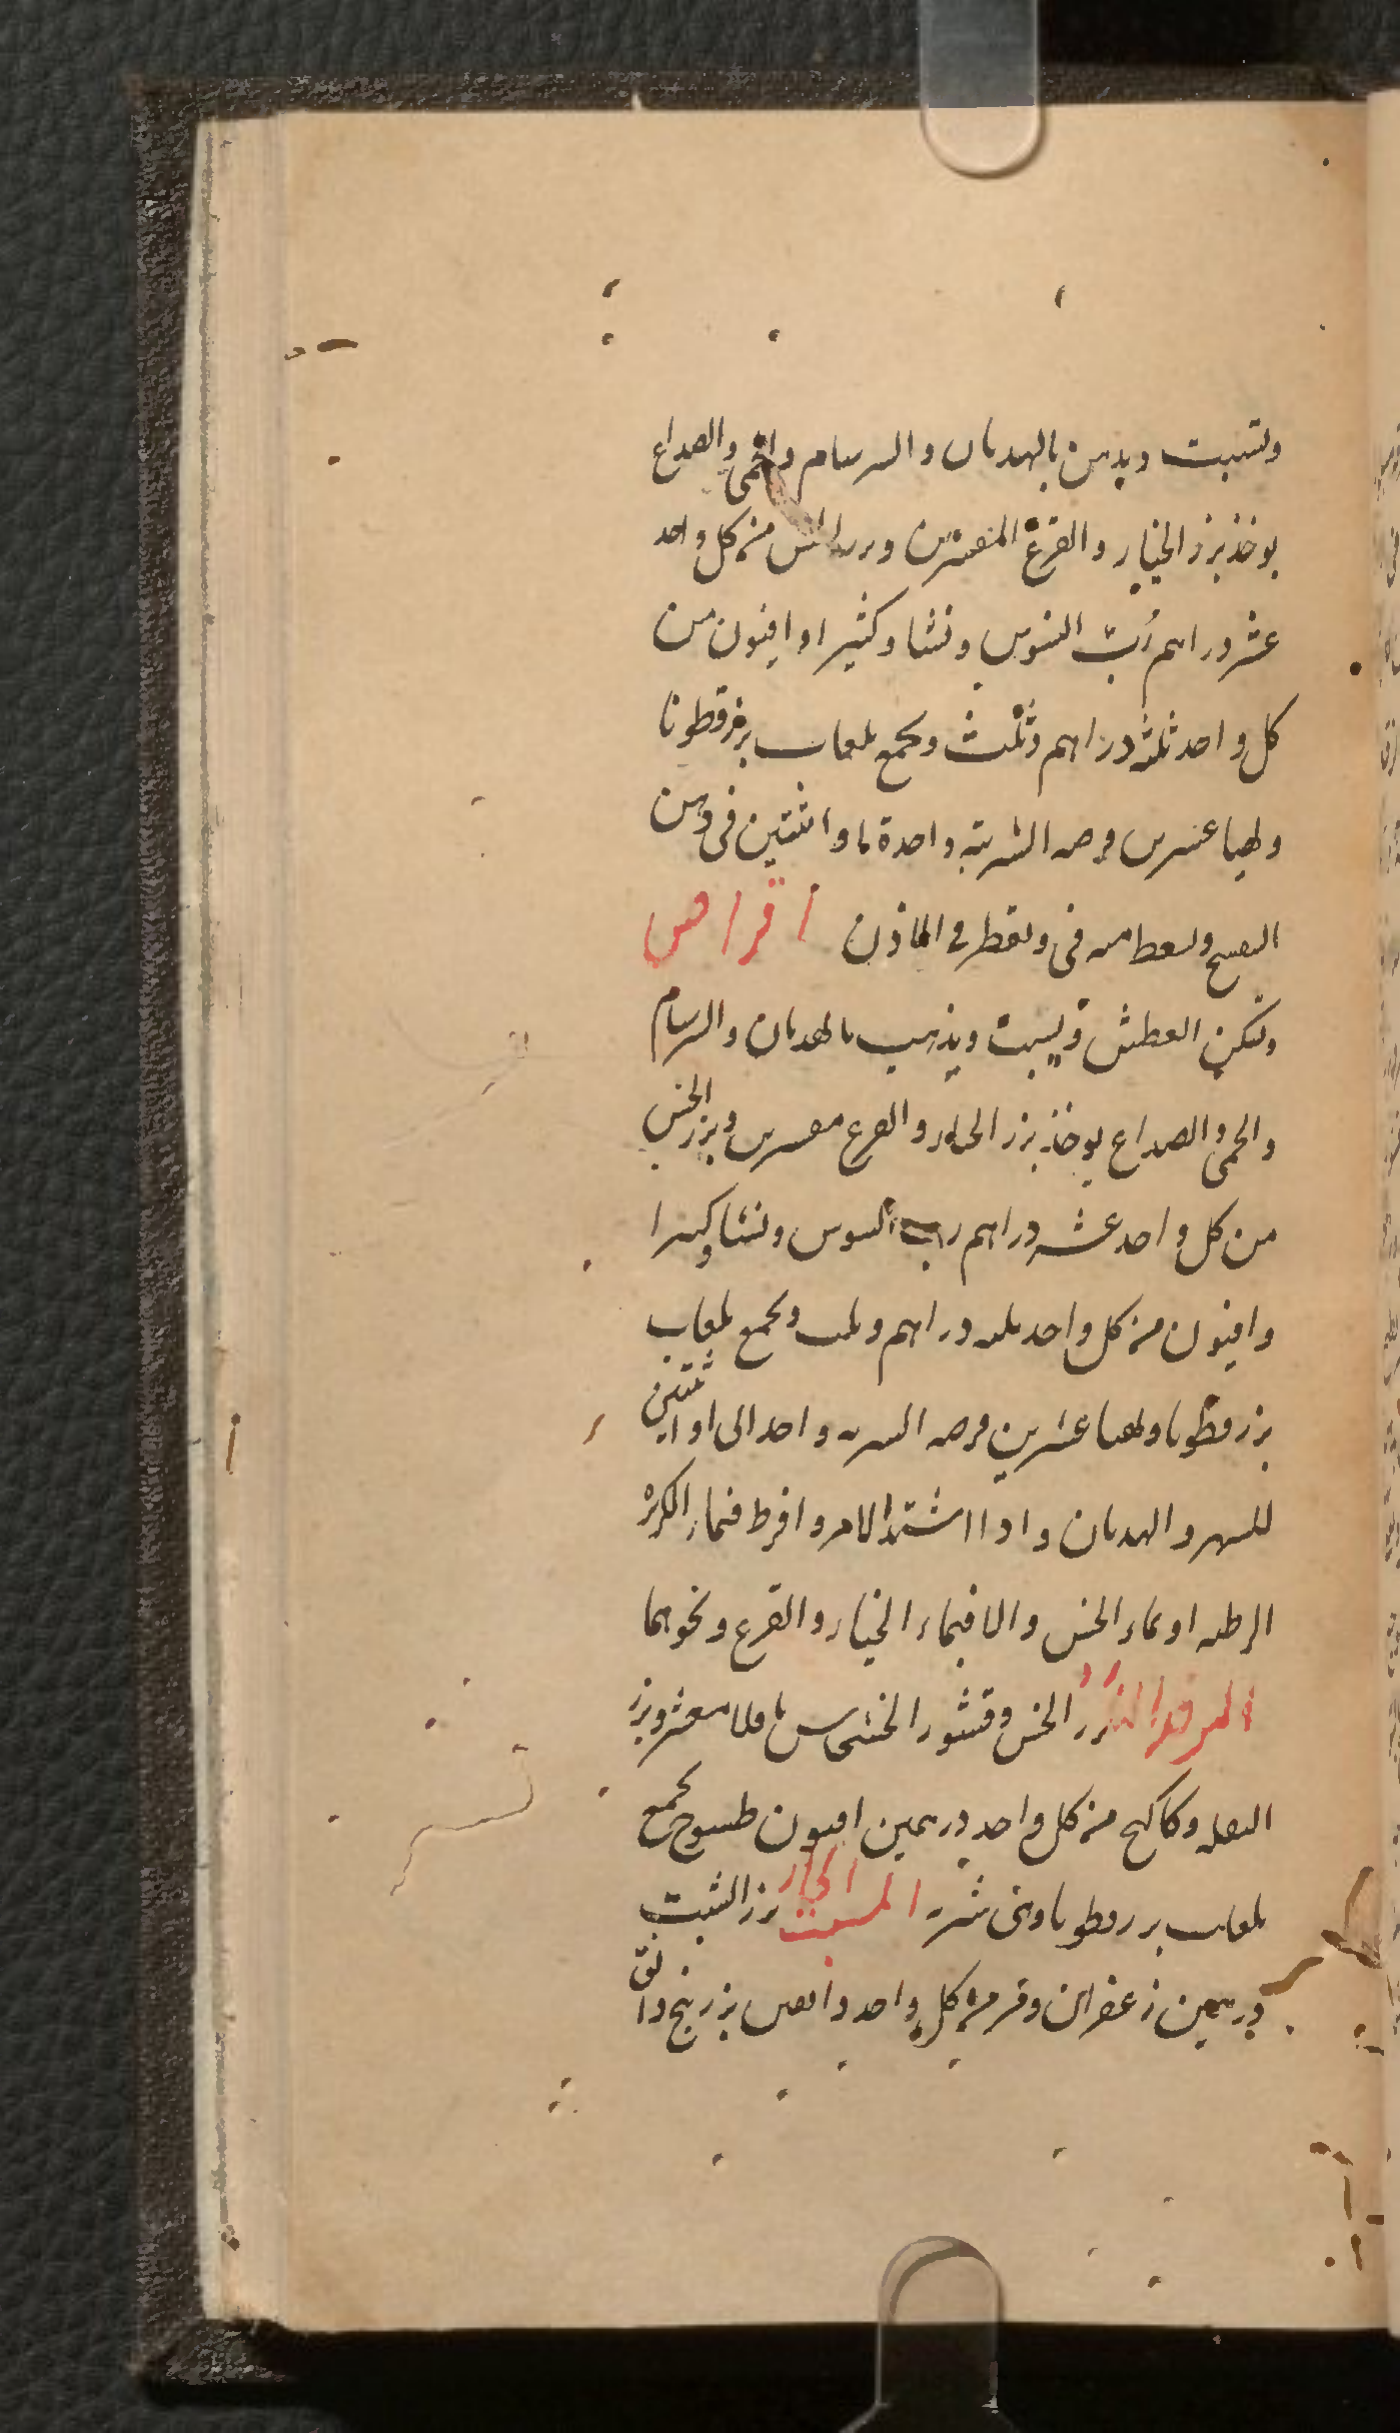 وتسبت ويدهن بالهديان والسرسام والحمى والصداع
يوخذ بزر الخيار والقرع المقشرين وبزر الخس من كل واحد
عشر دراهم رُبّ السوس ونشا وكثيرا وافيون من
كل واحد ثلثه دراهم وثُلث ويجمع بلعاب بزر قطونا
عشرين قرصه الشربة واحدة او اثنتين في دهن
البنفسج ويسعط منه في ويقطر في الاذن اقراص
وتسكن العطش وتسبت ويذهب بالهديان والسرسام
والحمى والصداع يوخذ بزر الخيار والقرع مقشرين وبزر الخس
من كل واحد عشر دراهم رب السوس ونشا وكثيرا
وافيون من كل واحد ثلثه دراهم وثلث ويجمع بلعاب
بزر قطونا عشرين قرصه الشربه واحد الى او اثنتين
للسهر والهديان واذا اشتد الامر وافرط فبماء الكزبرة
الرطبه او بماء الخس والا فبماء الخيار والقرع ونحوهما
المرقد البارد بزر الخس وقشور الخشخاش باقلا مقشر وبزر
البقله وكاكنج من كل واحد درهمين افيون طسوج يجمع
بلعاب بزر قطونا وهي شربه المسبت الحار بزر الشبت
درهمين زعفران ومر من كل واحد دانقين بزر بنج دانق